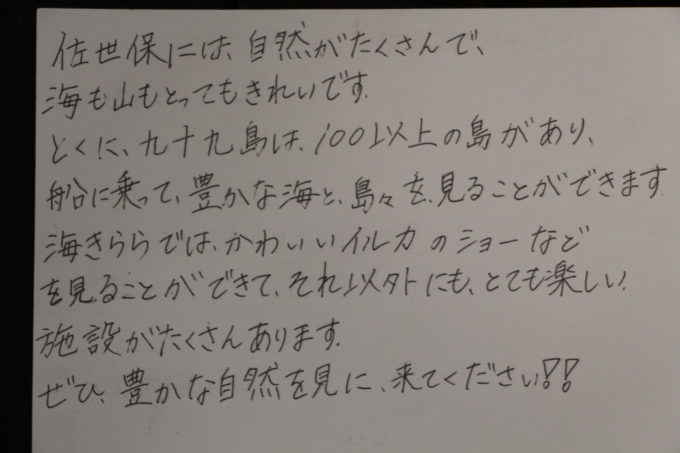 佐世保には、自然がたくさんで、
海も山もとってもきれいです。
とくに、九十九島は、100以上の島があり、
船に乗って、豊かな海と、島々を、見ることができます。
海きららでは、かわいいイルカのショーなど
を見ることができて、それ以外にも、とても楽しい
施設がたくさんあります。
ぜひ、豊かな自然を見に、来てください!!